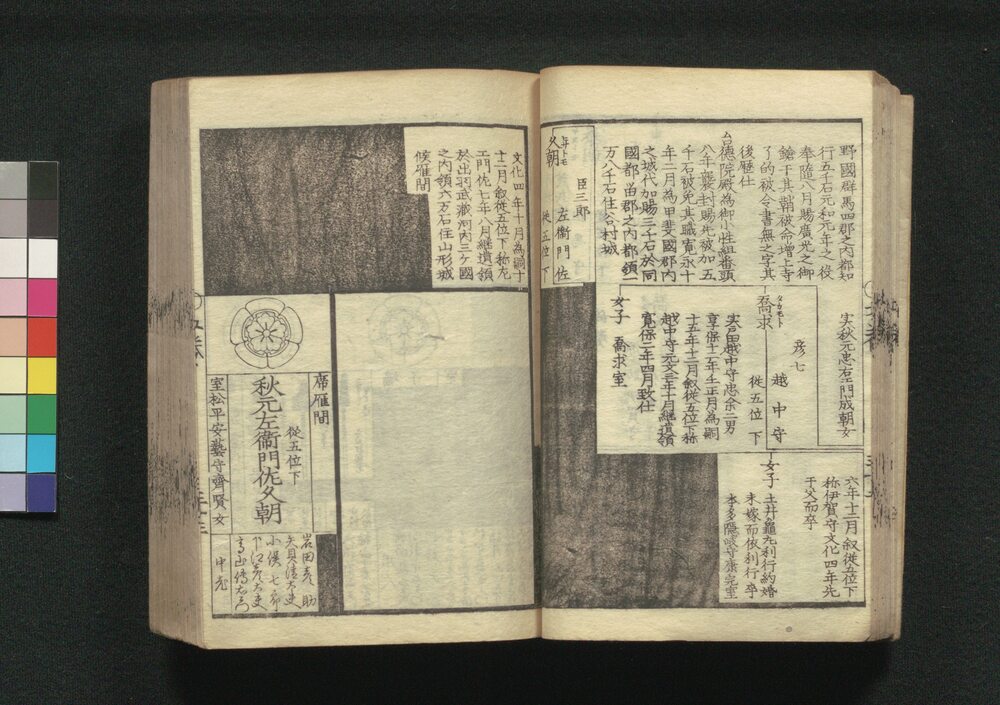 野國群馬四郡之内都知
行五千石元和元年之役
奉隨八月賜廣光之御
鎗于其朝被命増上寺
了的被令書無之字其
後歴仕
台德院殿為御小性組番頭
八年襲封賜先被加五
千石被免其職寛永十
年二月為甲斐國郡内
之城代加賜三千石於同
國都留郡之内都領一
万八千石住谷村城
実秋元忠右エ門成朝女
彦七
越中守
從五位下
喬求
実戸田越中守忠余二男
享保十七年壬正月為嗣
十五年十二月叙從五位下称
越中守元文三年十月継遺領
寛保二年四月致仕
女子 喬求室
六年十二月叙從五位下
称伊賀守文化四年先
于父而卒
女子
土井龜九利行約婚
未嫁而依利行卒
本多隠岐守康完室
久朝
臣三郎
左衞門佐
從五位下
文化四年十月為嗣十
十二月叙從五位下称左
エ門佐七年八月継遺領
於出羽武藏河内三ヶ國
之内領六万石住山形城
候雁間
席雁間
從五位下
秋元左衞門佐久朝
室松平安藝守齊賢女
岩田彦助
小俣七郎
中老